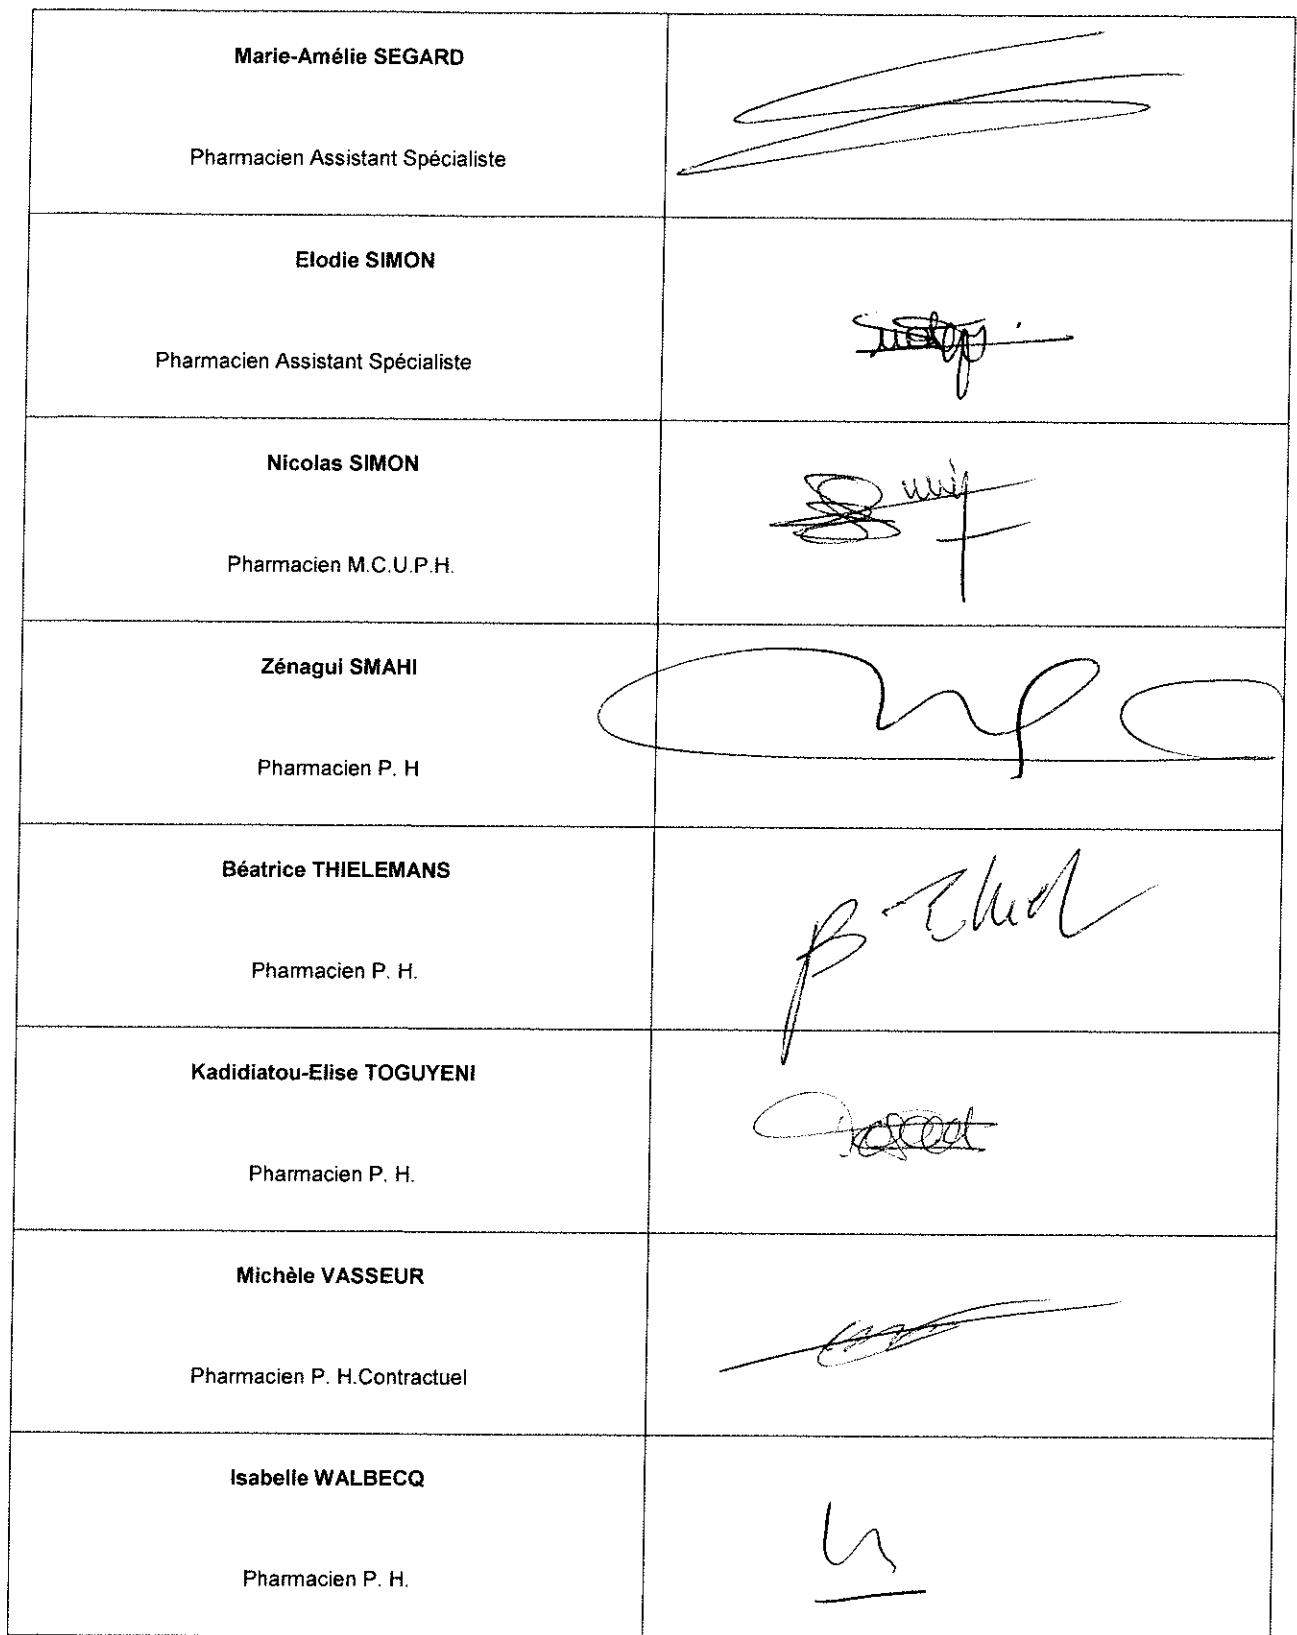 Marie-Amélie SEGARD
Pharmacien Assistant Spécialiste
Elodie SIMON
Pharmacien Assistant Spécialiste
Nicolas SIMON
Pharmacien M.C.U.P.H.
Zénagui SMAHI
Pharmacien P. H
Béatrice THIELEMANS
Pharmacien P. H.
Kadidiatou-Elise TOGUYENI
Pharmacien P. H.
Michèle VASSEUR
Pharmacien P. H.Contractuel
Isabelle WALBECQ
Pharmacien P. H.